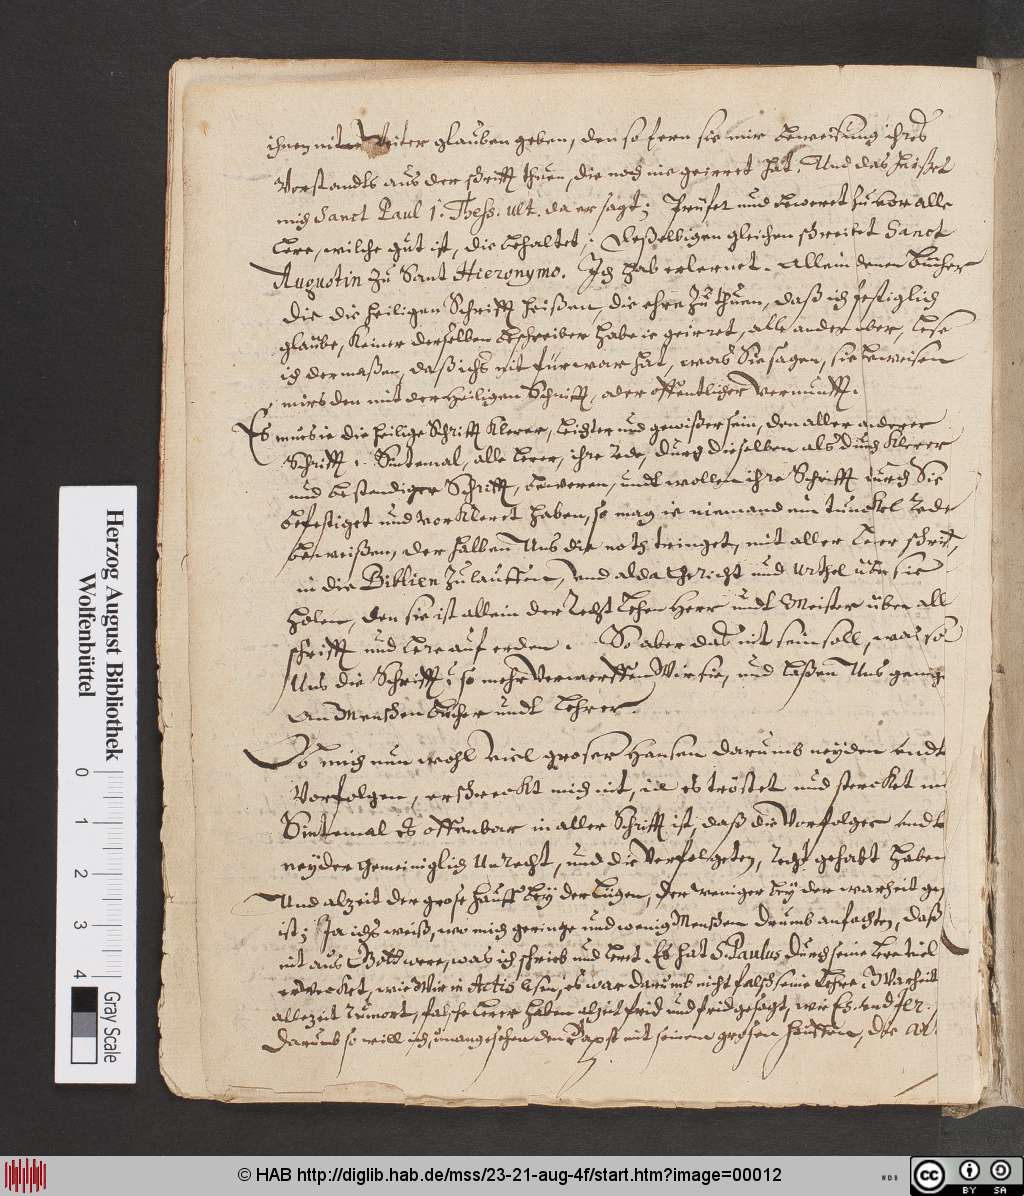 ihnen nit Weiter glauben geben, den so fern sie mir beweisung ihres
Vorstandts aus der schrifft thuen, die noch nie geirret hat. Und das heißet
mich Sanct Paul 1. Thess. ult. da er sagt; Prüfet und beweret zuvor alle
Lere, wilche gut ist, die behaltet; deßelbigen gleichen schreibet Sanct
Augustin zu Sant Hieronymo. Ich hab erlernet. Allein denen bücher
die die heiligen Schrifft heißen, die ehre zu thuen, daß ich festiglich
glaube, keiner derselben beschreiber habe ie geirret, alle ander aber, lese
ich dermaßen, daß ichs nit fürwar hat, was Sie sagen, sie beweisen
mirs den mit der heiligen Schrifft, oder offentlicher vernunfft.
Es mues ie die heilige Schrifft klerer, leichter und gewißer sein, den aller anderer
Schrifft, Sintemal, alle Lerer, ihre rede, durch dieselben als durch klerer
und bestendiger Schrifft, beweren, undt wollen ihre Schrifft durch Sie
befestiget und vorkleret haben, so mag ie niemand ein tunckel rede
beweißen, der halben Uns die noth tringet, mit aller Lerer schrifft,
in die Biblien zulauffen, und alda Gericht und urthel über sie
holen, den sie ist allein der recht Lehen Herr undt Meister über all
schrifft und Lere auf erden. So aber das nit sein soll, was so
Uns die Schrifft, so mehr Verwerffen Wir sie, und laßen Uns genug
an Menschen bücher undt Lehrer.
Ob mich nun wohl viel groser Hansen darumb neyden undt
Vorfolgen, erschreckt mich nit, ia es tröstet und stercket mi
Sintemal es offenbar in aller Schrifft ist, daß die Vorfolger undt
neyder gemeiniglich Unrecht, und die Verfolgeten, recht gehabt haben
Und alzeit der grose hauff bey der Lügen, der weniger bey der warheit ge
ist; Ja ichs weiß, wo mich geringe und wenig Menschen drumb anfachten, daß
nit aus Gott were, was ich schrieb und leret. Es hat S. Paulus durch seine Lere viel
erwecket, wie Wir in Actis lesen, es war darumb nicht falsch seine Lehre, Warheit
allezeit rumort, falsche Lerer haben alzeit frid und frid gesagt, wie Es. und Jer.
Darumb so will ich, unangesehen den Papst mit seinem grosen hauffen, die ar
Herzog August Bibliothek
Wolfenbüttel
0 1 2 3 4
Gray Scale
© HAB http://diglib.hab.de/mss/23-21-aug-4f/start.htm?image=00012
WDB
CC BY SA